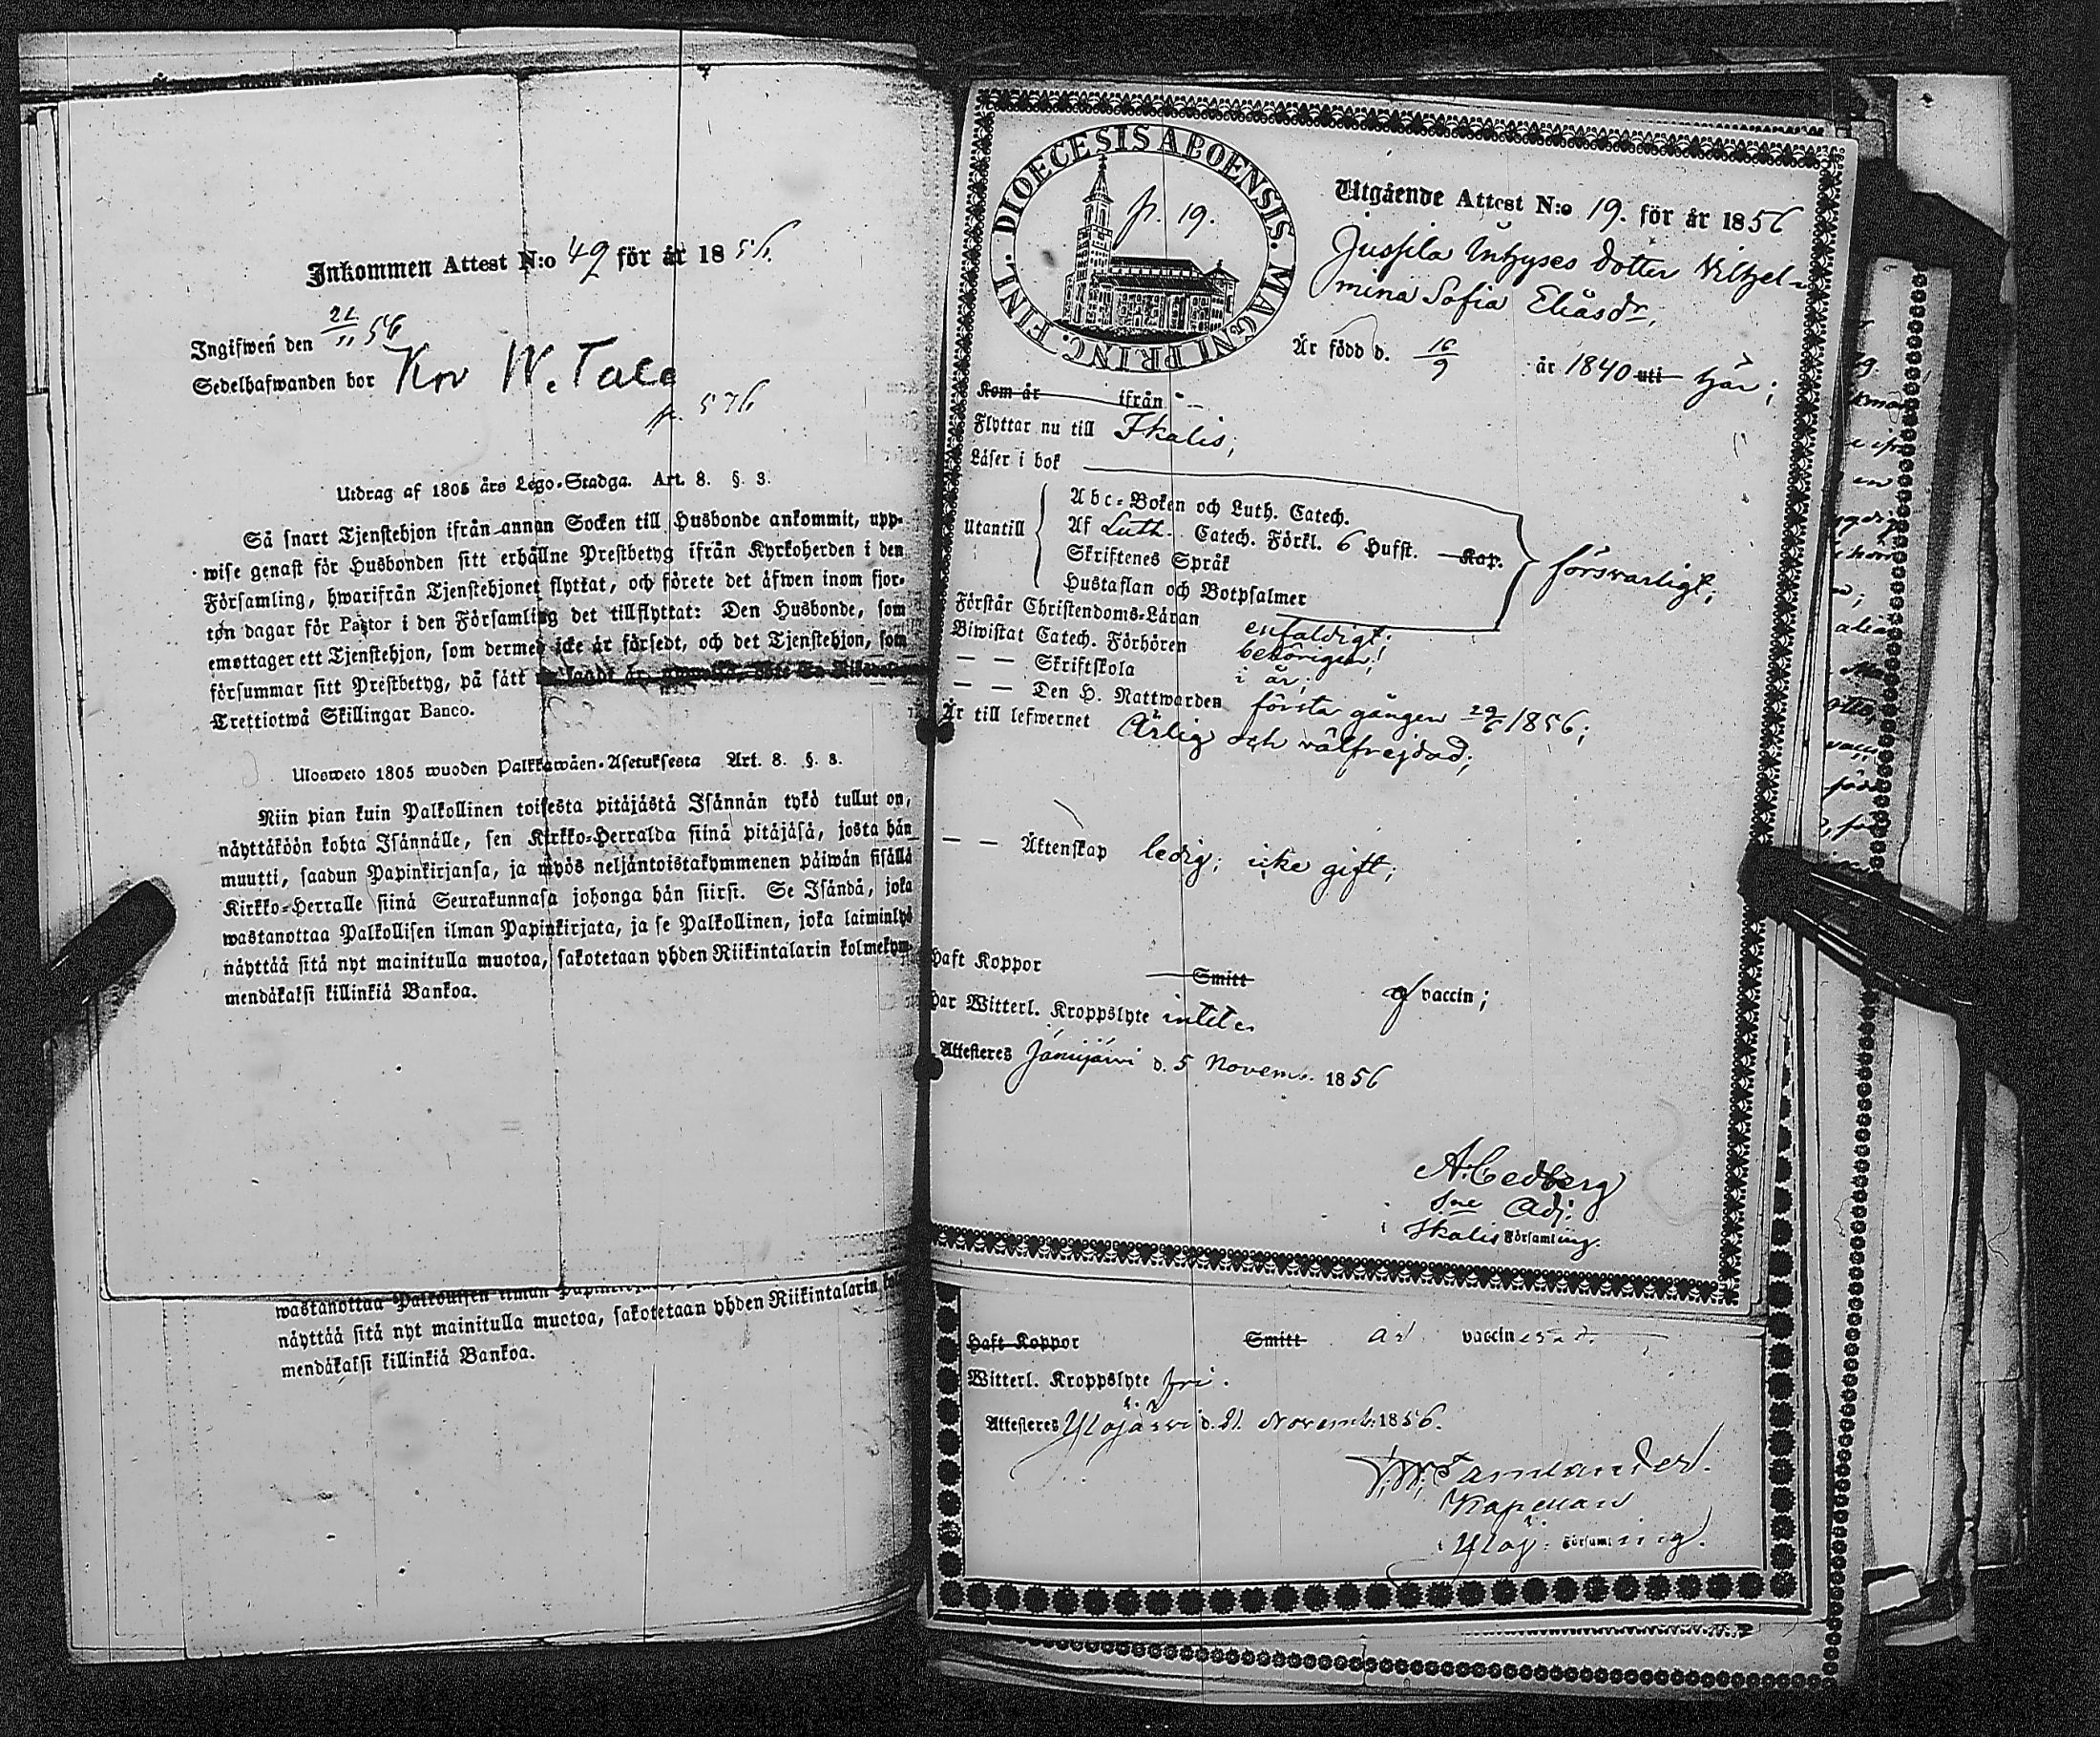 Inkommen Attest N:o 49 för år 1856.
Ingifwen den 21/11 56
Sedelhafwanden bor Krv W. Tala
p. 576
Utdrag af 1805 års Lego-Stadga. Art. 8. §. 3.
Så snart Tjenstehjon ifrån annan Socken till Husbonde ankommit, upp-
wise genast för Husbonden sitt erhållne Prestbetyg ifrån Kyrkoherden i den
Församling, hwarifrån Tjenstehjonet flyttat, och förete det äfwen inom fjor-
ton dagar för Pastor i den Församling det tillflyttat: Den Husbonde, som
emottager ett Tjenstehjon, som dermed icke är försedt, och det Tjenstehjon, som
försummar sitt Prestbetyg, på sätt
Trettiotwå Skillingar Banco.
Ulosweto 1805 wuoden Palkkawäen-Asetuksesta Art. 8. §. 3.
Niin pian kuin Palkollinen toisesta pitäjästä Isännän tykö tullut on,
näyttäköön kohta Isännälle, sen Kirkko-Herralda siinä pitäjäsä, josta hän
muutti, saadun Papinkirjansa, ja myös neljäntoistakymmenen päiwän sisällä
Kirkko-Herralle siinä Seurakunnasa johonga hän siirsi. Se Isändä, joka
wastanottaa Palkollisen ilman Papinkirjata, ja se Palkollinen, joka laiminlyö
näyttää sitä nyt mainitulla muotoa, sakotetaan yhden Riikintalarin kolmekym-
mendäkaksi killinkiä Bankoa.
wastanottaa Palkollisen ilman
näyttää sitä nyt mainitulla muotoa, sakotetaan yhden Riikintalarin kol
mendäkaksi killinkiä Bankoa.
DIOECESIS ABOENSIS. MAGNI PRINC. FINL.
p. 19.
Utgående Attest N:o 19. för år 1856
Jussila Inhyses dotter Vilhel-
mina Sofia Eliasdr,
Är född d. 16/9 år 1840 uti här;
Kom år ifrån
Flyttar nu till Ikalis;
Läser i bok
Utantill
Abc-Boken och Luth. Catech.
Af Luth. Catech. Förkl. 6 Hufst. Kap.
Skriftenes Språk
Hustaflan och Botpsalmer
försvarligt;
Förstår Christendoms-Läran enfaldigt;
Biwistat Catech. Förhören behörigen;
— — Skriftskola i år;
— — Den H. Nattwarden första gången 29/6 1856;
Är till lefwernet Ärlig och välfrejdad;
— — Äktenskap ledig; icke gift;
Haft Koppor Smitt af vaccin;
Har Witterl. Kroppslyte intet.
Attesteres Jämijärvi d. 5 Novemb. 1856
A. Cedberg
Sne Adj.
i Ikalis Församling.
Haft Koppor Smitt är vaccinerad.
Witterl. Kroppslyte fri.
Attesteres Ylöjärvi d. 21 Novemb. 1856.
Kapellan
i Ylöj. Församling.